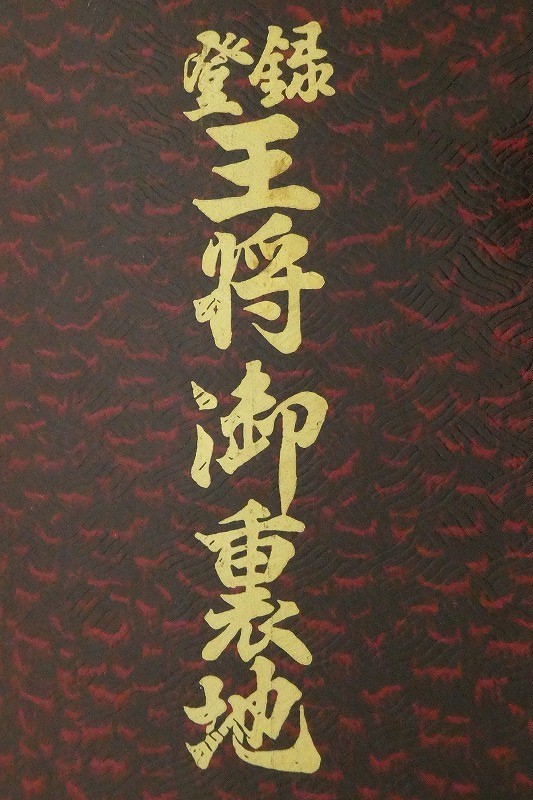 登録
王将御裏地